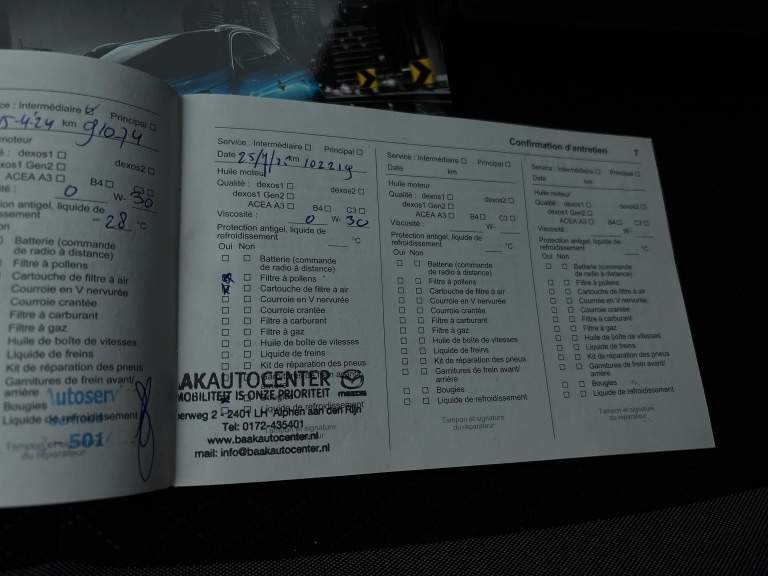 ce : Intermédiaire Principal
15-4-24 km 91074
moteur
é : dexos1
xos1 Gen2 dexos2
ACEA A3 B4
ité : 0 W- 30
ion antigel, liquide de
issement - 28 °C
on
Batterie (commande
de radio à distance)
Filtre à pollens
Cartouche de filtre à air
Courroie en V nervurée
Courroie crantée
Filtre à carburant
Filtre à gaz
Huile de boîte de vitesses
Liquide de freins
Kit de réparation des pneus
Garnitures de frein avant/
arrière
Bougies
Liquide de refroidissement
Autoserv
501
Tampon et
du réparateur
Confirmation d'entretien 7
Service : Intermédiaire Principal
Date km 102219
Huile moteur
Qualité : dexos1 dexos2
dexos1 Gen2
ACEA A3 B4 C3
Viscosité : 0 W- 30
Protection antigel, liquide de
refroidissement °C
Oui Non
Batterie (commande
de radio à distance)
Filtre à pollens
Cartouche de filtre à air
Courroie en V nervurée
Courroie crantée
Filtre à carburant
Filtre à gaz
Huile de boîte de vitesses
Liquide de freins
Kit de réparation des pneus
Liquide de refroidissement
Tampon et signature
AAKAUTOCENTER mazda
MOBILITEIT IS ONZE PRIORITEIT
erweg 2 - 2401 LH Alphen aan den Rijn
Tel: 0172-435401
www.baakautocenter.nl
mail: info@baakautocenter.nl
Service : Intermédiaire Principal
Date km
Huile moteur
Qualité : dexos1 dexos2
dexos1 Gen2
ACEA A3 B4 C3
Viscosité : W-
Protection antigel, liquide de
refroidissement °C
Oui Non
Batterie (commande
de radio à distance)
Filtre à pollens
Cartouche de filtre à air
Courroie en V nervurée
Courroie crantée
Filtre à carburant
Filtre à gaz
Huile de boîte de vitesses
Liquide de freins
Kit de réparation des pneus
Garnitures de frein avant/
arrière
Bougies
Liquide de refroidissement
Tampon et signature
du réparateur
Service : Intermédiaire Principal
Date km
Huile moteur
Qualité : dexos1 dexos2
dexos1 Gen2
ACEA A3 B4 C3
Viscosité : W-
Protection antigel, liquide de
refroidissement °C
Oui Non
Batterie (commande
de radio à distance)
Filtre à pollens
Cartouche de filtre à air
Courroie en V nervurée
Courroie crantée
Filtre à carburant
Filtre à gaz
Huile de boîte de vitesses
Liquide de freins
Kit de réparation des pneus
Garnitures de frein avant/
arrière
Bougies
Liquide de refroidissement
Tampon et signature
du réparateur